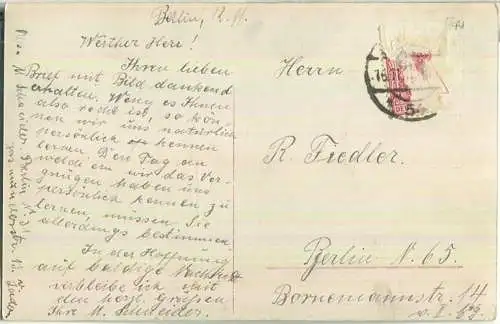 Berlin, 12. 11.
Werther Herr!
Ihren lieben
Brief mit Bild dankend
erhalten. Wenn es Ihnen
also recht ist, so kön-
nen wir uns natürlich
persönlich kennen
lernen. Den Tag an
welchem wir das Ver-
gnügen haben uns
persönlich kennen zu
lernen, müssen Sie
allerdings bestimmen.
In der Hoffnung
auf baldige Nachricht
verbleibe ich mit
den herzl. Grüßen
Ihre M. Schneider.
M. Schneider, Berlin N. 31
Laden
Herrn
R. Fiedler.
Berlin N. 65.
Bornemannstr. 14
v. I